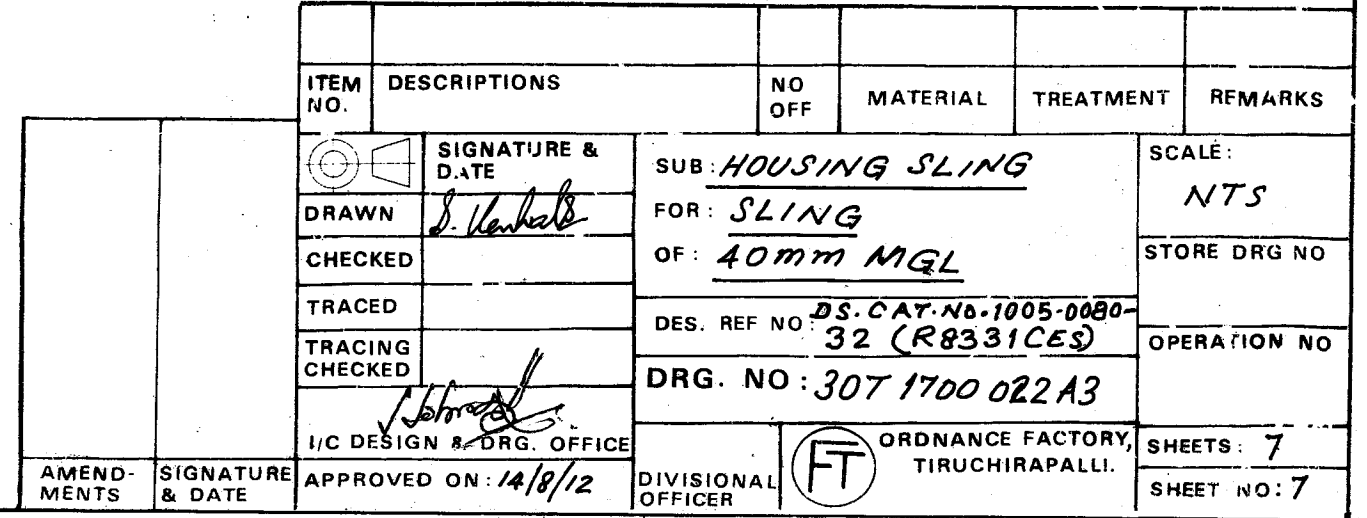 ITEM NO.
DESCRIPTIONS
NO OFF
MATERIAL
TREATMENT
REMARKS
SIGNATURE & DATE
DRAWN
CHECKED
TRACED
TRACING CHECKED
I/C DESIGN & DRG. OFFICE
APPROVED ON : 14/8/12
AMEND-
MENTS
SIGNATURE
& DATE
SUB : HOUSING SLING
FOR : SLING
OF : 40mm MGL
DES. REF NO : DS. CAT. NO. 1005-0080-
32 (R8331CES)
DRG. NO : 30T 1700 022 A3
DIVISIONAL
OFFICER
FT
ORDNANCE FACTORY,
TIRUCHIRAPALLI.
SCALE:
NTS
STORE DRG NO
OPERATION NO
SHEETS: 7
SHEET NO: 7